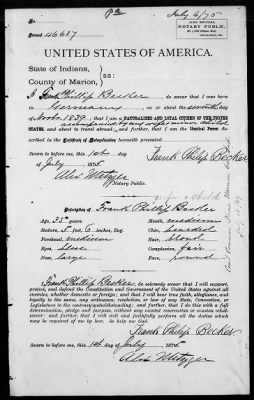 July 6/75
ALEX METZGER,
NOTARY PUBLIC,
Issued 46687
UNITED STATES OF AMERICA.
State of Indiana,
County of Marion, } ss:
I, Frank Phillip Becker, do swear that I was born
in Germany, on or about the seventh
day of Novbr 1839, that I am a NATURALIZED AND LOYAL CITIZEN OF THE UNITED
STATES, and about to travel abroad, and further, that I am the Identical Person described
in the Certificate of Naturalization herewith presented.
Sworn to before me, this 1st day
of July 1875
Frank Philip Becker
Alex Metzger
Notary Public.
Description of Frank Phillip Becker
Age, 35 years
Mouth, medium
Stature, 5 feet, 6 inches, Eng.
Chin, bearded
Forehead, medium
Hair, blonde
Eyes, blue
Complexion, fair
Nose, large
Face, round
I, Frank Phillip Becker, do solemnly swear that I will support,
protect, and defend the Constitution and Government of the United States against all
enemies, whether domestic or foreign; and that I will bear true faith, allegiance, and
loyalty to the same, any ordinance, resolution, or law of any State, Convention, or
Legislature to the contrary notwithstanding; and further, that I do this with a full
determination, pledge, and purpose, without any mental reservation or evasion whatsoever;
and further, that I will well and faithfully perform all the duties which may be
required of me by law. So help me God.
Frank Philip Becker
Sworn to before me, this 1st day
of July 1875
Alex Metzger